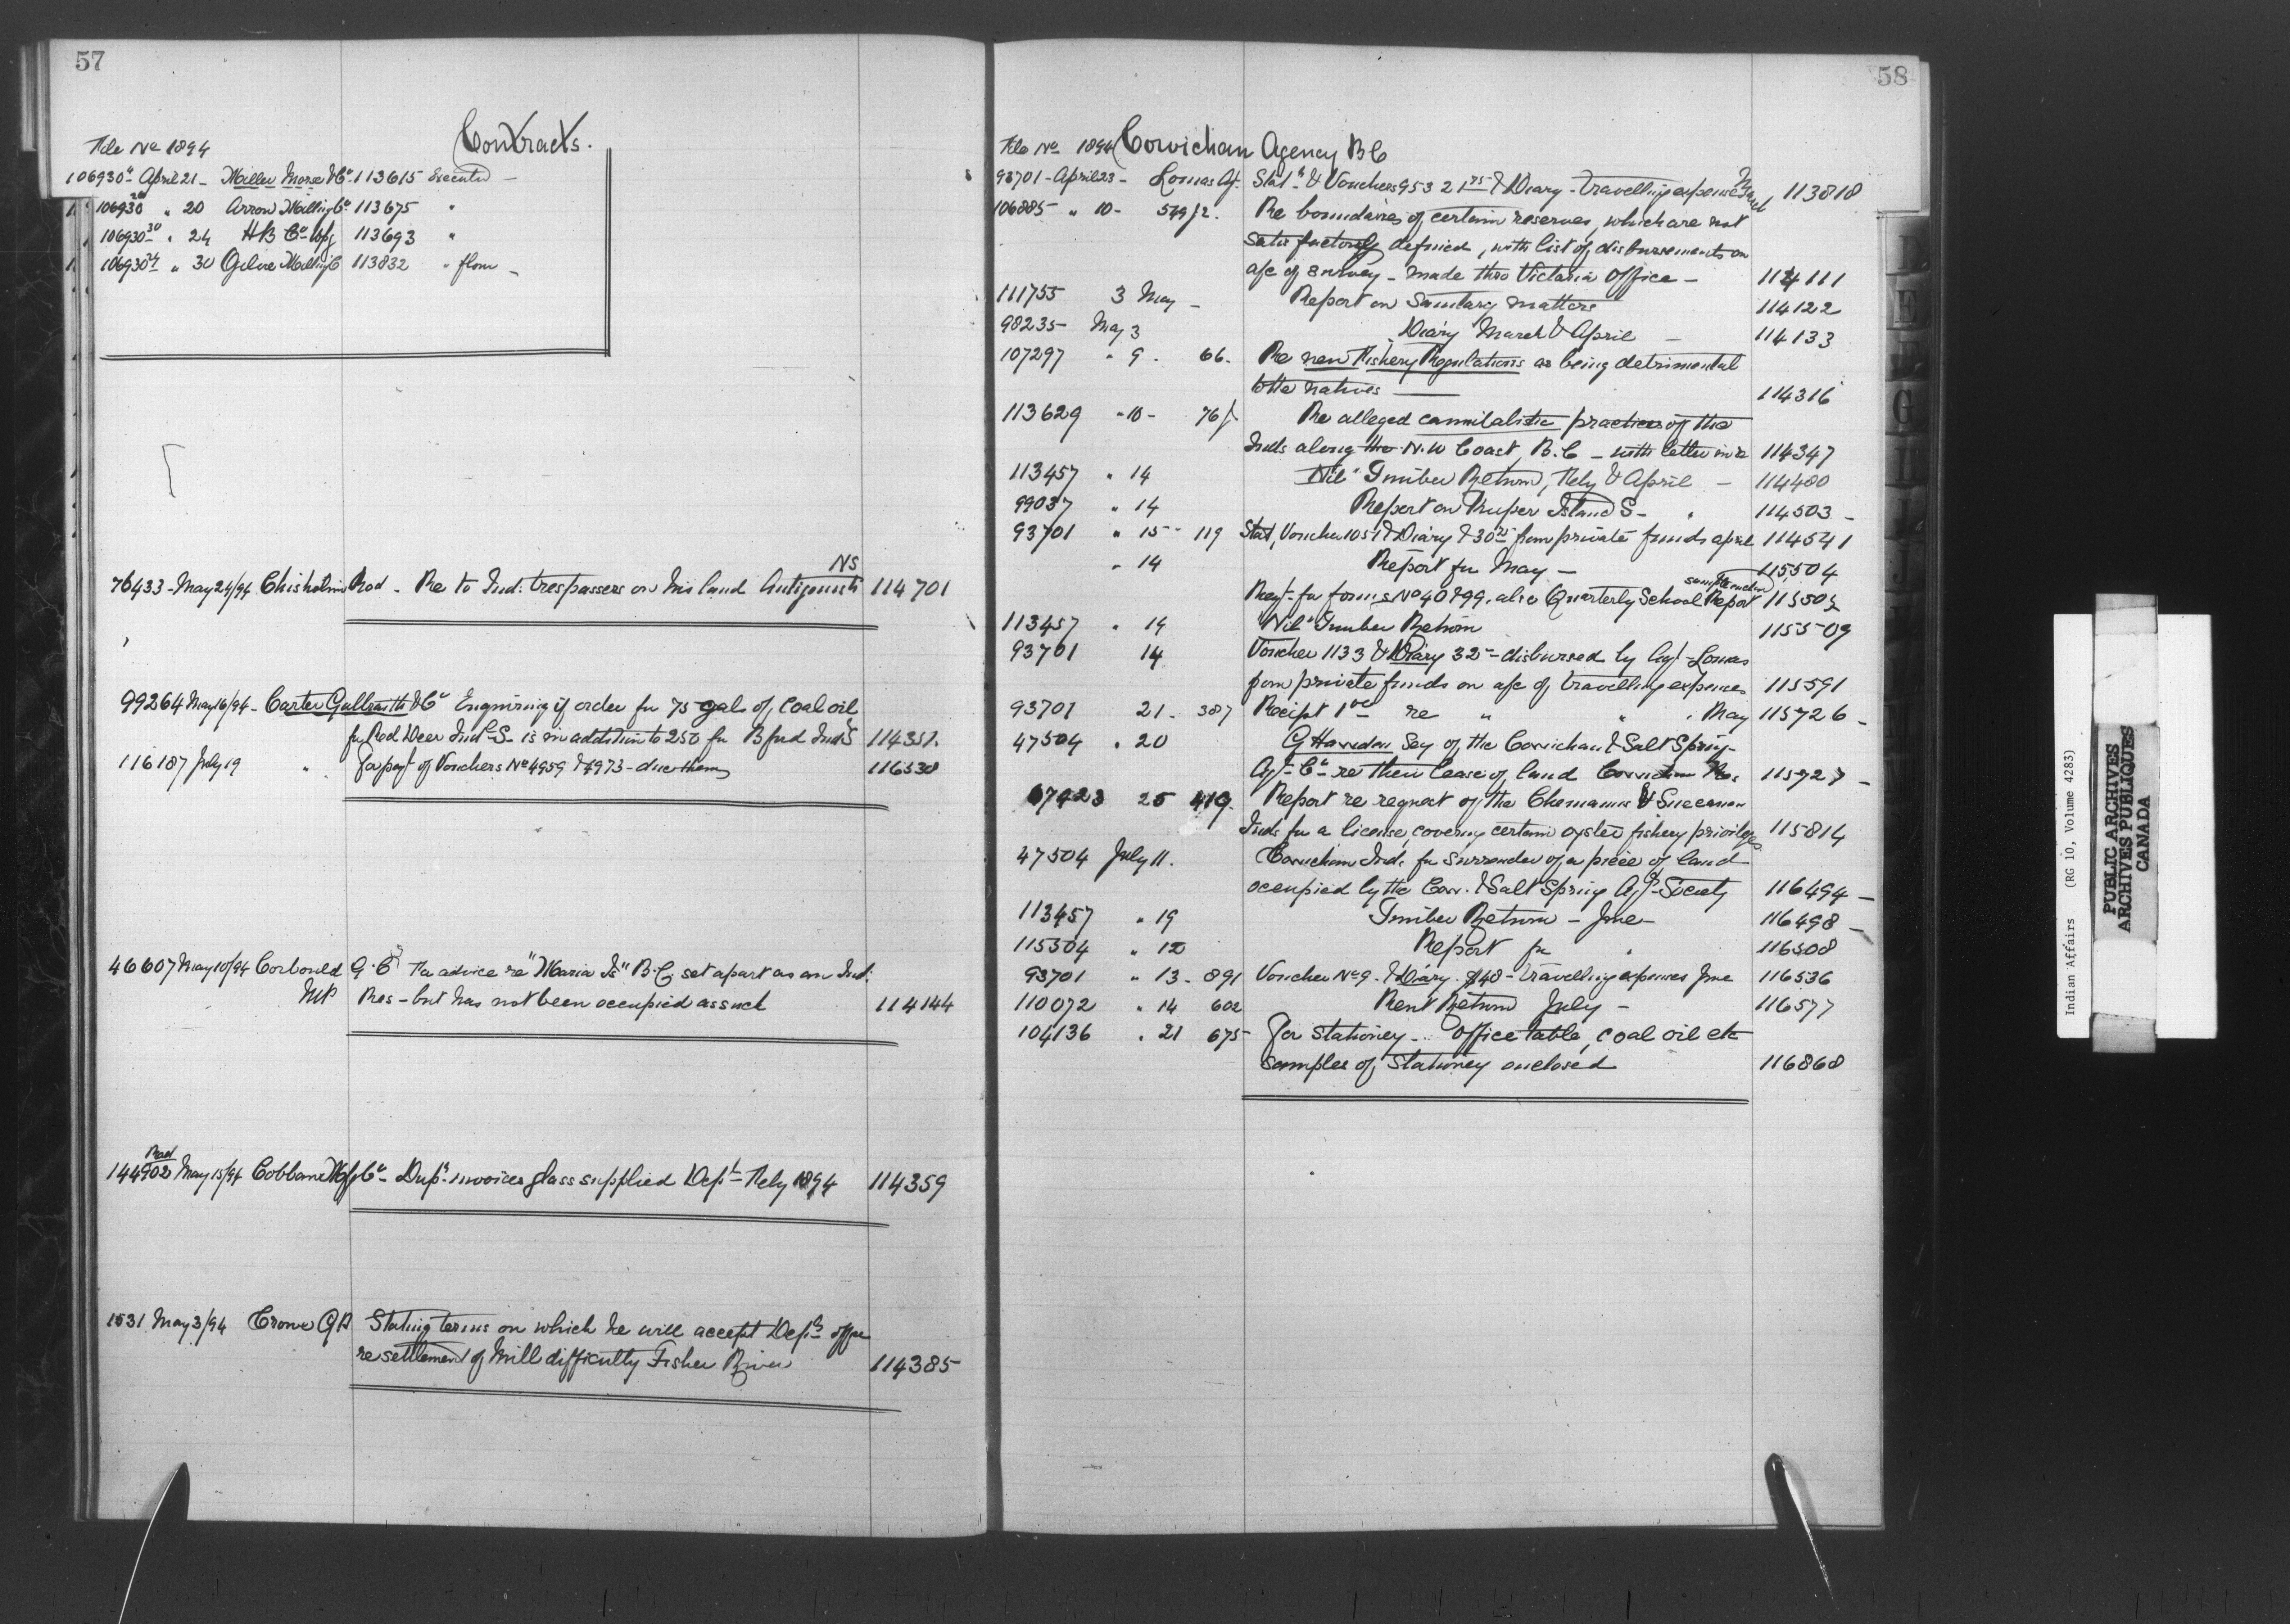 57
Contracts.
File No 1894
106930 April 21 - Miller Morse & Co 113615 Executed -
106930 " 20 Arrow Milling Co 113675 "
106930 " 24 HB Co Wpg 113693 "
106930 " 30 Ogilvie Milling C 113832 " flour -
NS
76433 - May 24/94 Chisholm Rod - Re to Ind: trespassers on his land Antigonish 114701
99264 May 16/94 - Carter Galbraith & Co Enquiring if order for 75 gals of Coal oil
for Red Deer Ind S - is in addition to 250 for Bfud Inds 114351
116187 July 19 " For payt of Vouchers No 4959 & 4973 - due them 116530
46607 May 10/94 Corbould G.E For advice re "Maria Is" B.C set apart as an Ind:
MP Res - but has not been occupied as such 114144
144902 May 15/94 Cobban Mfg Co - Dup: invoices glass supplied Dept - Feby 1894 114359
1531 May 3/94 Crowe GA Stating terms on which he will accept Depts offer
re settlement of Mill difficulty Fisher River 114385
58
File No 1894 Cowichan Agency BC
93701 - April 23 - Lomas Ag. Stat & Vouchers 953 21 75 & Diary - travelling expenses March 113818
106885 " 10 - 549/2. Re boundaries of certain reserves, which are not
satisfactorily defined, with list of disbursements on
a/c of survey - made thro Victoria Office - 114111
111755 3 May - Report on Sanitary matters 114122
98235 - May 3 Diary March & April - 114133
107297 " 9 . 66. Re new Fishery Regulations as being detrimental
to the natives 114316
113629 " 10 - 76/ Re alleged cannibalistic practices of the
Inds along the N.W Coast, B.C - with letter in re 114347
113457 " 14 "Nil" Timber Return, Feby & April - 114480
99037 " 14 Report on Kuper Island S - " 114503 -
93701 " 15 - 119 Stat, Voucher 1051 & Diary & 30 from private funds april 114541
" 14 Report for May - 115504
sample enclosed
Reqt. for forms No 40 & 99. also Quarterly School Report 115505
113457 " 14 "Nil" Timber Return 115509
93701 14 Voucher 1133 & Diary 32 - disbursed by Agt - Lomas
from private funds on a/c of travelling expenses 115591
93701 21 - 387 Receipt re " " " May 115726 -
47504 " 20 G Havedon Sey of the Cowichan & Salt Spring
Agl - Co - re their lease of land Cowichan Res 115727 -
67423 25 419. Report re request of the Chemainus & Sicc
Inds for a license, covering certain oyster fishery privileges 115814
47504 July 11. Cowichan Ind. for surrender of a piece of land
occupied by the Cow. & Salt Spring Agl - Society 116494 -
113457 " 19 Timber Return - June - 116498 -
115504 " 12 Report for " 116508
93701 " 13 - 891 Voucher No 9 - & Diary. $48 - travelling expenses June 116536
110072 " 14 602 Rent Return July - 116577
104136 " 21 675 For stationery - Office table, coal oil etc
samples of Stationery enclosed 116868
Indian Affairs (RG 10, Volume 4283)
PUBLIC ARCHIVES
ARCHIVES PUBLIQUES
CANADA